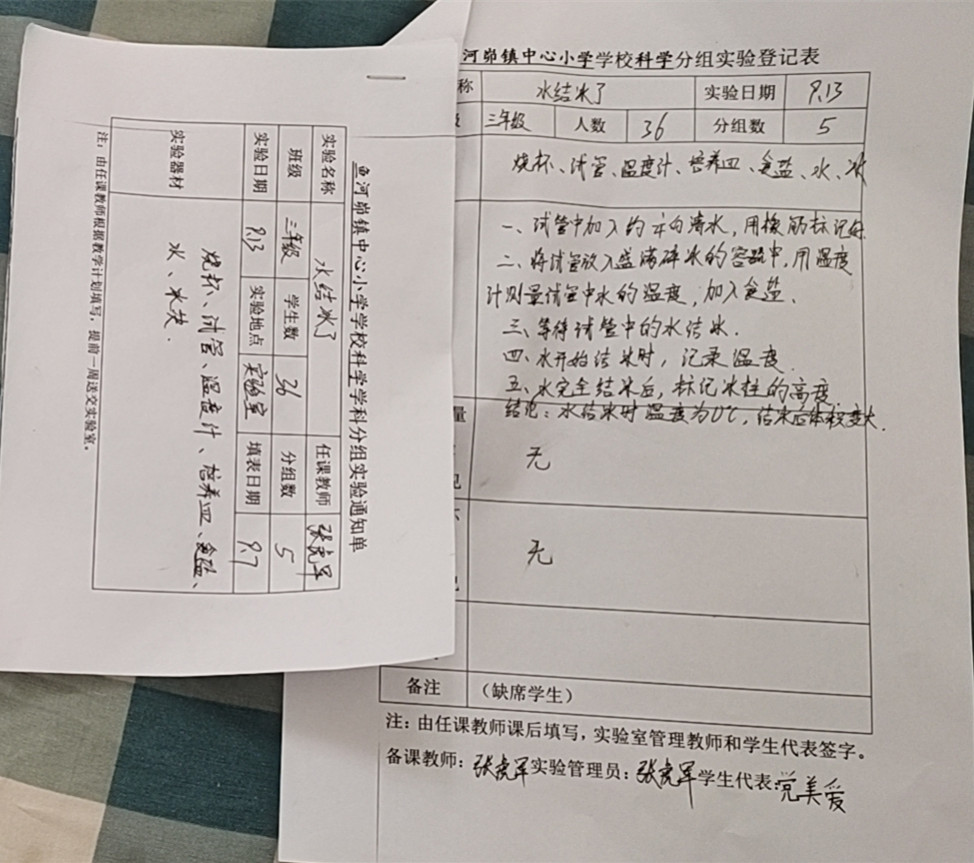 鱼河峁镇中心小学学校科学学科分组实验通知单
实验名称 水结冰了 任课教师 张虎军
班级 三年级 学生数 36 分组数 5
实验日期 9.13 实验地点 实验室 填表日期 9.7
实验器材 烧杯、试管、温度计、培养皿、食盐、
水、冰块.
注：由任课教师根据教学计划填写，提前一周送交实验室。
河峁镇中心小学学校科学分组实验登记表
称 水结冰了 实验日期 9.13
三年级 人数 36 分组数 5
烧杯、试管、温度计、培养皿、食盐、水、冰
一、试管中加入约 的清水，用橡筋标记好.
二、将试管放入盛满碎冰的容器中，用温度
计测量试管中水的温度，加入食盐.
三、等待试管中的水结冰.
四、水开始结冰时，记录温度.
五、水完全结冰后，标记冰柱的高度.
结论：水结冰时温度为0℃，结冰后体积变大.
量
无
无
备注 （缺席学生）
注：由任课教师课后填写，实验室管理教师和学生代表签字。
备课教师：张虎军 实验管理员：张虎军 学生代表：党美爱